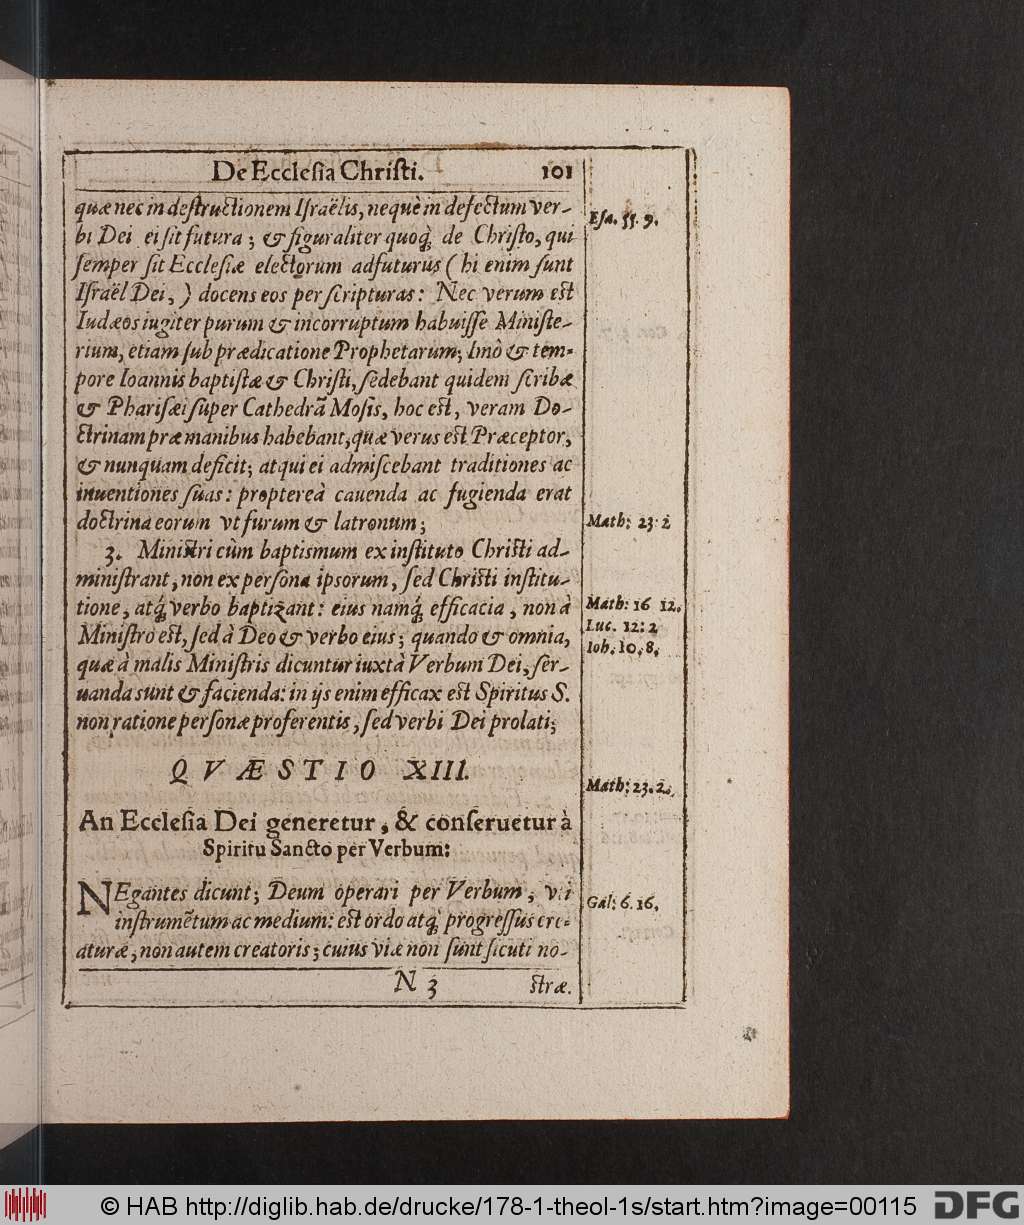 De Ecclesia Christi. 101
quæ nec in destructionem Israëlis, nequè in defectum ver-
bi Dei ei sit futura; & figuraliter quoq́; de Christo, qui
semper sit Ecclesiæ electorum adfuturus (hi enim sunt
Israël Dei,) docens eos per scripturas: Nec verum est
Iudæos iugiter purum & incorruptum habuisse Ministe-
rium, etiam sub prædicatione Prophetarum; Imò & tem-
pore Ioannis baptistæ & Christi, sedebant quidem scribæ
& Pharisæi super Cathedrã Mosis, hoc est, veram Do-
ctrinam præ manibus habebant, quæ verus est Præceptor,
& nunquam deficit; atqui ei admiscebant traditiones ac
inuentiones suas: proptereà cauenda ac fugienda erat
doctrina eorum vt furum & latronum;
3. Ministri cùm baptismum ex instituto Christi ad-
ministrant, non ex persona ipsorum, sed Christi institu-
tione, atq́; verbo baptizant: eius namq́; efficacia, non à
Ministro est, sed à Deo & verbo eius; quando & omnia,
quæ à malis Ministris dicuntur iuxtà Verbum Dei, ser-
uanda sunt & facienda: in ijs enim efficax est Spiritus S.
non ratione personæ proferentis, sed verbi Dei prolati;
QVÆSTIO XIII.
An Ecclesia Dei generetur, & conseruetur à
Spiritu Sancto per Verbum:
NEgantes dicunt; Deum operari per Verbum, vti
instrumẽtum ac medium: est ordo atq́; progressus cre-
aturæ, non autem creatoris; cuius viæ non sunt sicuti no-
N 3 stræ.
Esa. 55. 9.
Math: 23. 2
Math: 16 12.
Luc. 12: 2
Ioh. 10. 8.
Math: 23. 2.
Gal: 6. 16.
© HAB http://diglib.hab.de/drucke/178-1-theol-1s/start.htm?image=00115
DFG